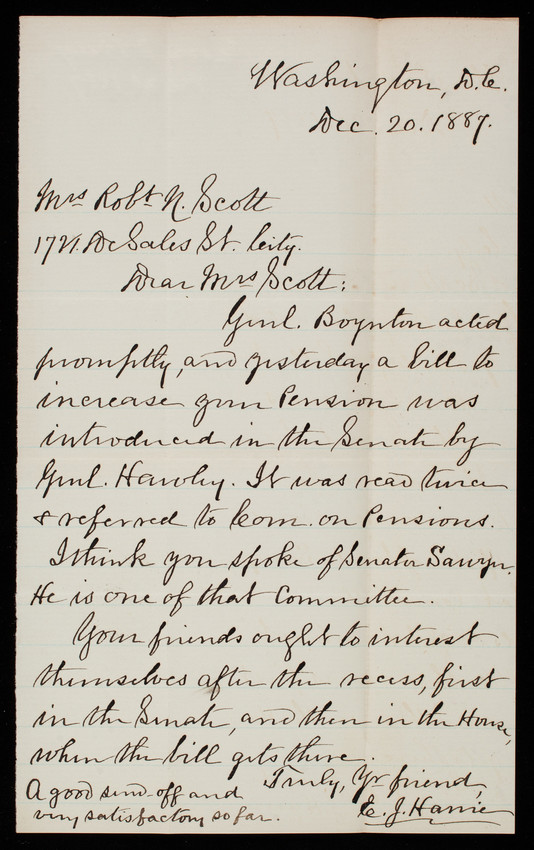 Washington, D.C.
Dec. 20. 1887.
Mrs Robt N. Scott
1721 De Sales St. City.
Dear Mrs Scott:
Genl. Boynton acted
promptly, and yesterday a bill to
increase your Pension was
introduced in the Senate by
Genl. Hawley. It was read twice
& referred to Com. on Pensions.
I think you spoke of Senator Sawyer.
He is one of that Committee.
Your friends ought to interest
themselves after the recess, first
in the Senate, and then in the House,
when the bill gets there.
Truly, Yr friend,
E. J.
A good send-off and
very satisfactory so far.